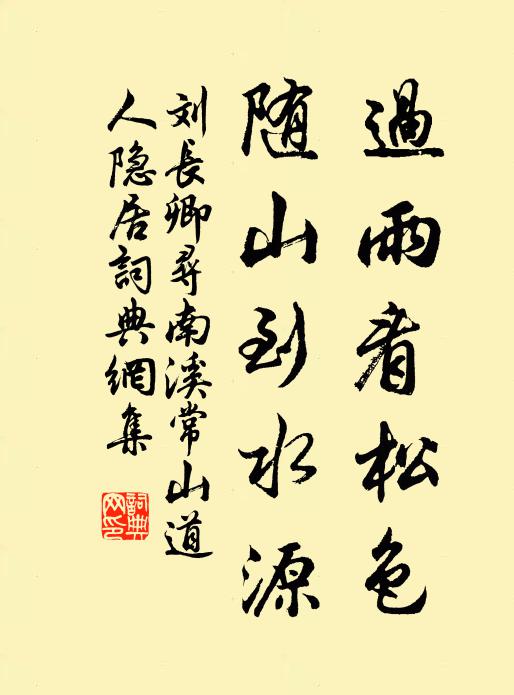 過雨看松色
随山到水源
刘長卿尋南溪常山道
人隐居詞典網集
詞典网印